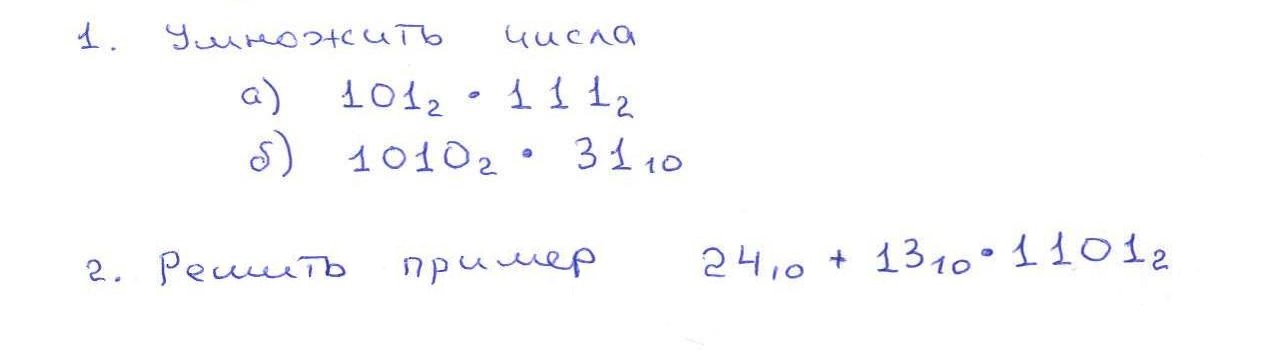 1. Умножить числа
а) 101₂ • 111₂
б) 1010₂ • 31₁₀
2. Решить пример 24₁₀ + 13₁₀ • 1101₂